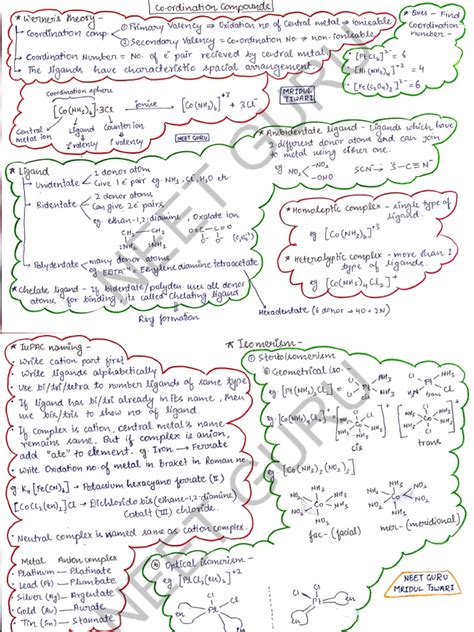 Co-ordination Compounds
* Werner's theory -
- Coordination comp.
① Primary Valency ⇒ Oxidation no of Central metal → ionisable
② Secondary Valency = Co-ordination No ⇒ non-ionisable
- Coordination Number = No. of e⁻ pair recieved by central metal
- The ligands have characteristic spacial arrangement
* Ques - Find Coordination number -
MRIDUL TIWARI
Coordination sphere
[Co(NH₃)₆]·3Cl ionise → [Co(NH₃)₆]⁺³ + 3Cl⁻
Central metal ion
ligand
Counter ion
2° valency
1° valency
NEET GURU
* Ambidentate ligand - Ligands which have 2 different donor atoms and can join to metal using either one.
eg. NO₂⁻
SCN⁻
* Ligand
- Unidentate
1 donor atom
Give 1 e⁻ pair eg. NH₃, Cl, H₂O etc
- Bidentate
2 donor atoms
Can give 2 e⁻ pairs
eg. ethan-1,2-diamine, Oxalate ion
- Polydentate
many donor atoms
eg. EDTA⁻⁴ - Ethylene diamine tetraacetate
Hexadentate (6 donor → 4O + 2N)
* Chelate ligand - If bidentate/polyden uses all donor atoms for binding its called Chelating ligand
Ring formation
* Homoleptic complex - single type of ligand.
eg. [Co(NH₃)₆]⁺³
* Heteroleptic complex - more than 1 type of ligande.
eg. [Co(NH₃)₄Cl₂]⁺
* IUPAC naming -
- Write cation part first
- Write ligands alphabetically
- Use bi/tri/tetra to number ligands of same type
- If ligand has bi/tri already in its name, then use bis/tris to show no of ligand.
- If complex is cation, central metal's name remains same. But if complex is anion, add "ate" to element. eg. Iron → Ferrate
- Write Oxidation no. of metal in braket in Roman no.
eg K₄[Fe(CN)₆] → Potassium hexacyano ferrate (II)
[CoCl₂(en)₂]Cl → Dichlorido bis(ethane-1,2-diamine) Cobalt (III) chloride.
- Neutral complex is named same as cation complex.
Metal Anion complex
- Platinum — Platinate
- Lead (Pb) — Plumbate
- Silver (Ag) — Argentate
- Gold (Au) — Aurate
- Tin (Sn) — Stannate
* Isomerism -
① Stereoisomerism
Geometrical iso -
eg. [Pt(NH₃)₂Cl₂]
eg. [Co(NH₃)₄Cl₂]⁺
cis
trans
eg. [Co(NH₃)₃(NO₂)₃]
fac- (facial)
mer- (meridional)
Optical isomerism -
eg. [PtCl₂(en)₂]⁺²
NEET GURU
MRIDUL TIWARI
NEET GURU
NEET GURU